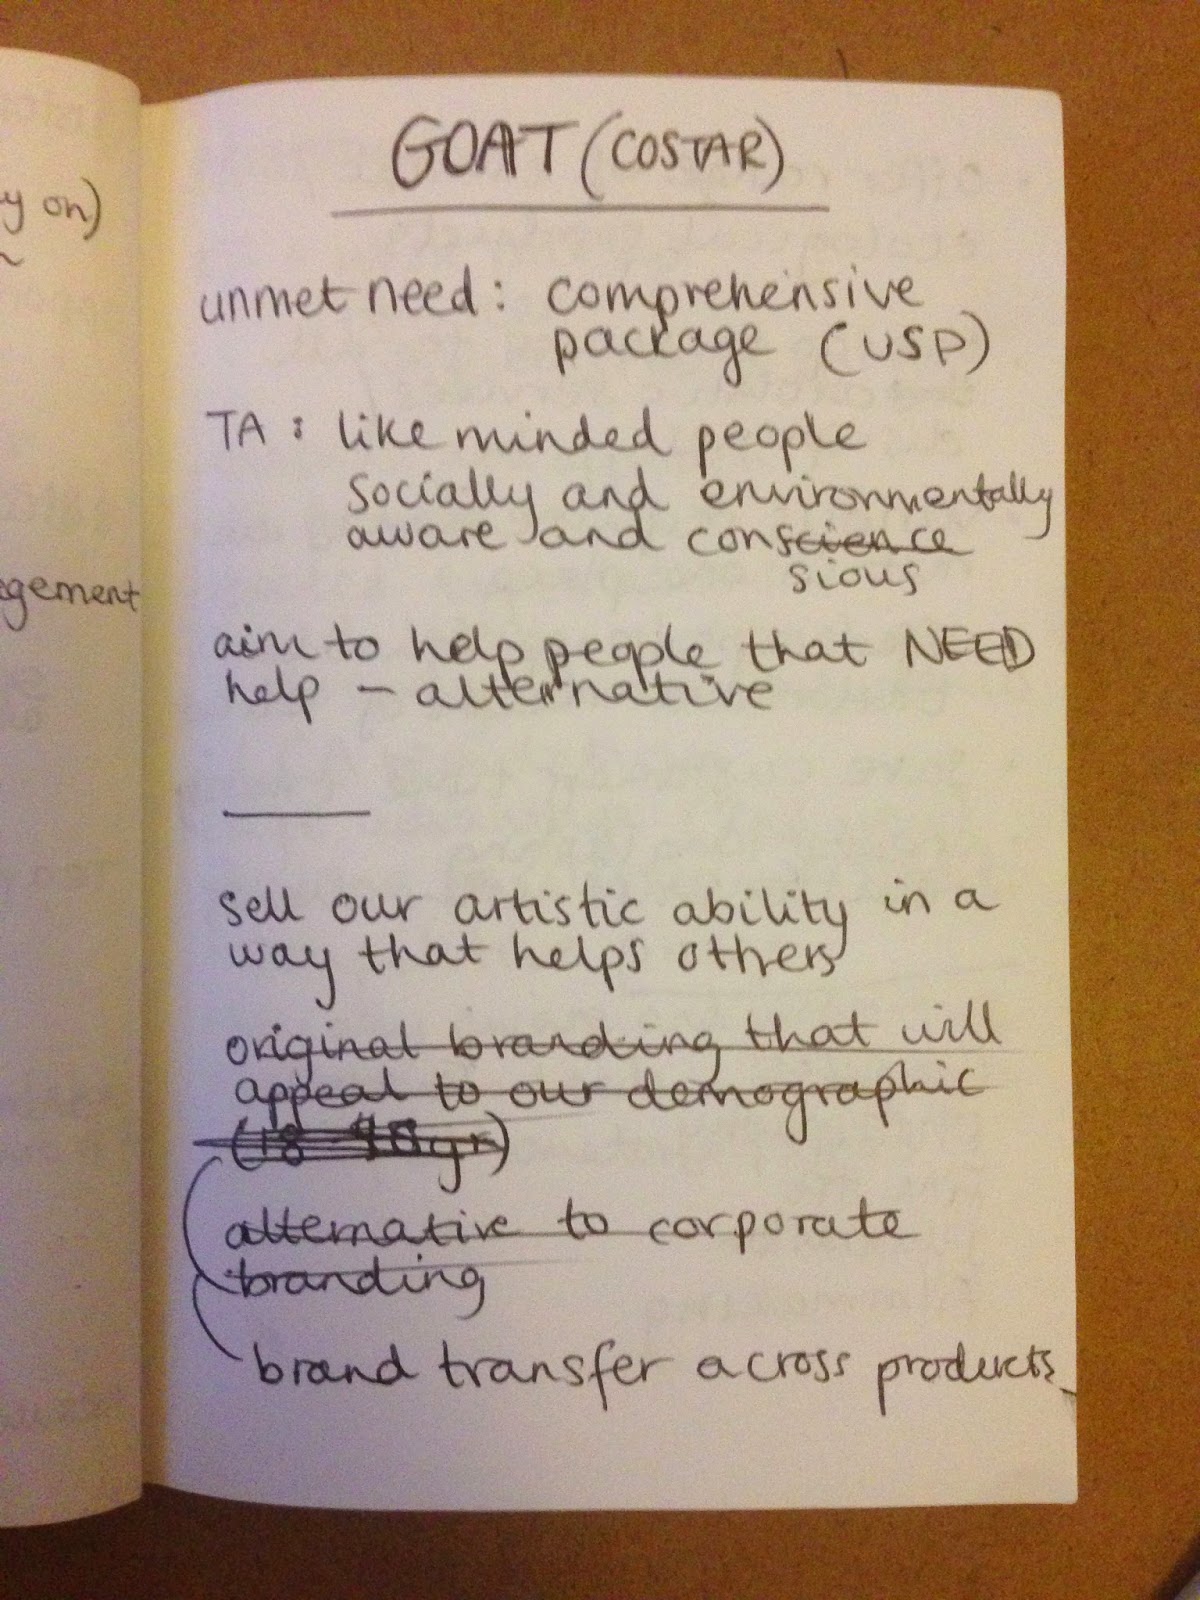 y on)
gement
GOAT (COSTAR)
unmet need: comprehensive
package (USP)
TA: like minded people
socially and environmentally
aware and conscience
sious
aim to help people that NEED
help - alternative
sell our artistic ability in a
way that helps others
original branding that will
appeal to our demographic
alternative to corporate
branding
brand transfer across products